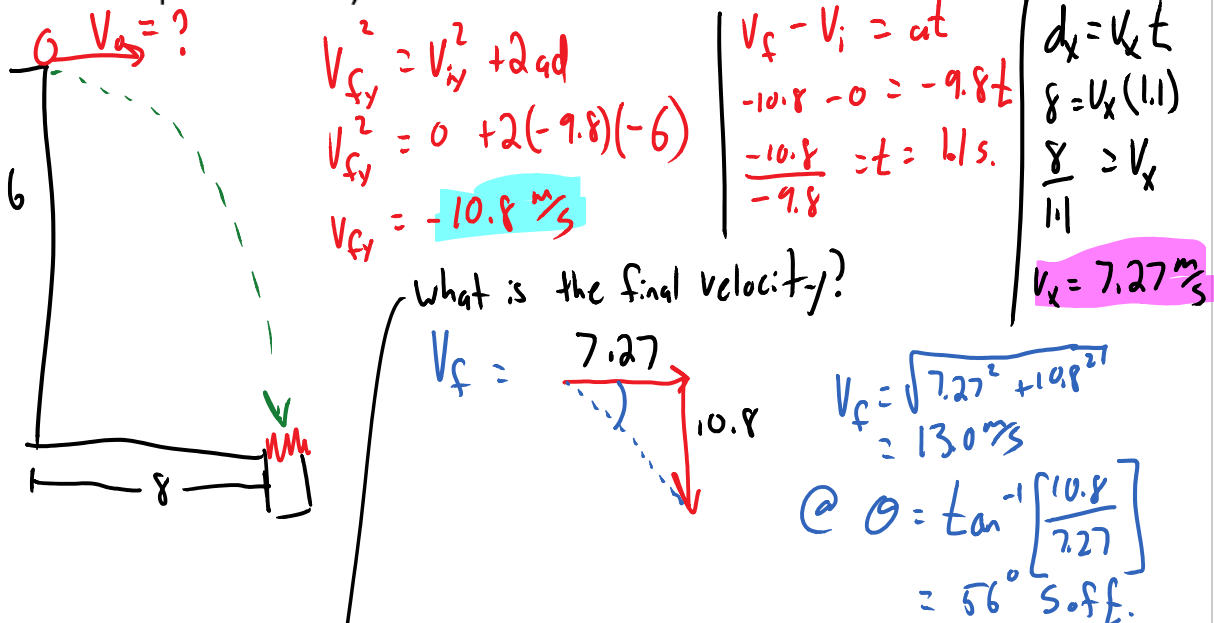 V₀ = ?
6
8
V_fy² = V_iy² + 2ad
V_fy² = 0 + 2(-9.8)(-6)
V_fy = -10.8 m/s
V_f - V_i = at
-10.8 - 0 = -9.8t
-10.8/-9.8 = t = 1.1 s.
d_x = V_x t
8 = V_x (1.1)
8/1.1 = V_x
V_x = 7.27 m/s
What is the final velocity?
V_f =
7.27
10.8
V_f = √7.27² + 10.8²
= 13.0 m/s
@ θ = tan⁻¹ [10.8/7.27]
= 56° S of E.